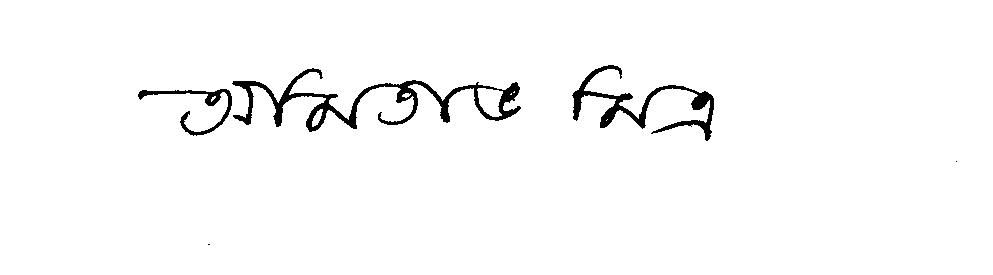 অমিতাভ মিত্র